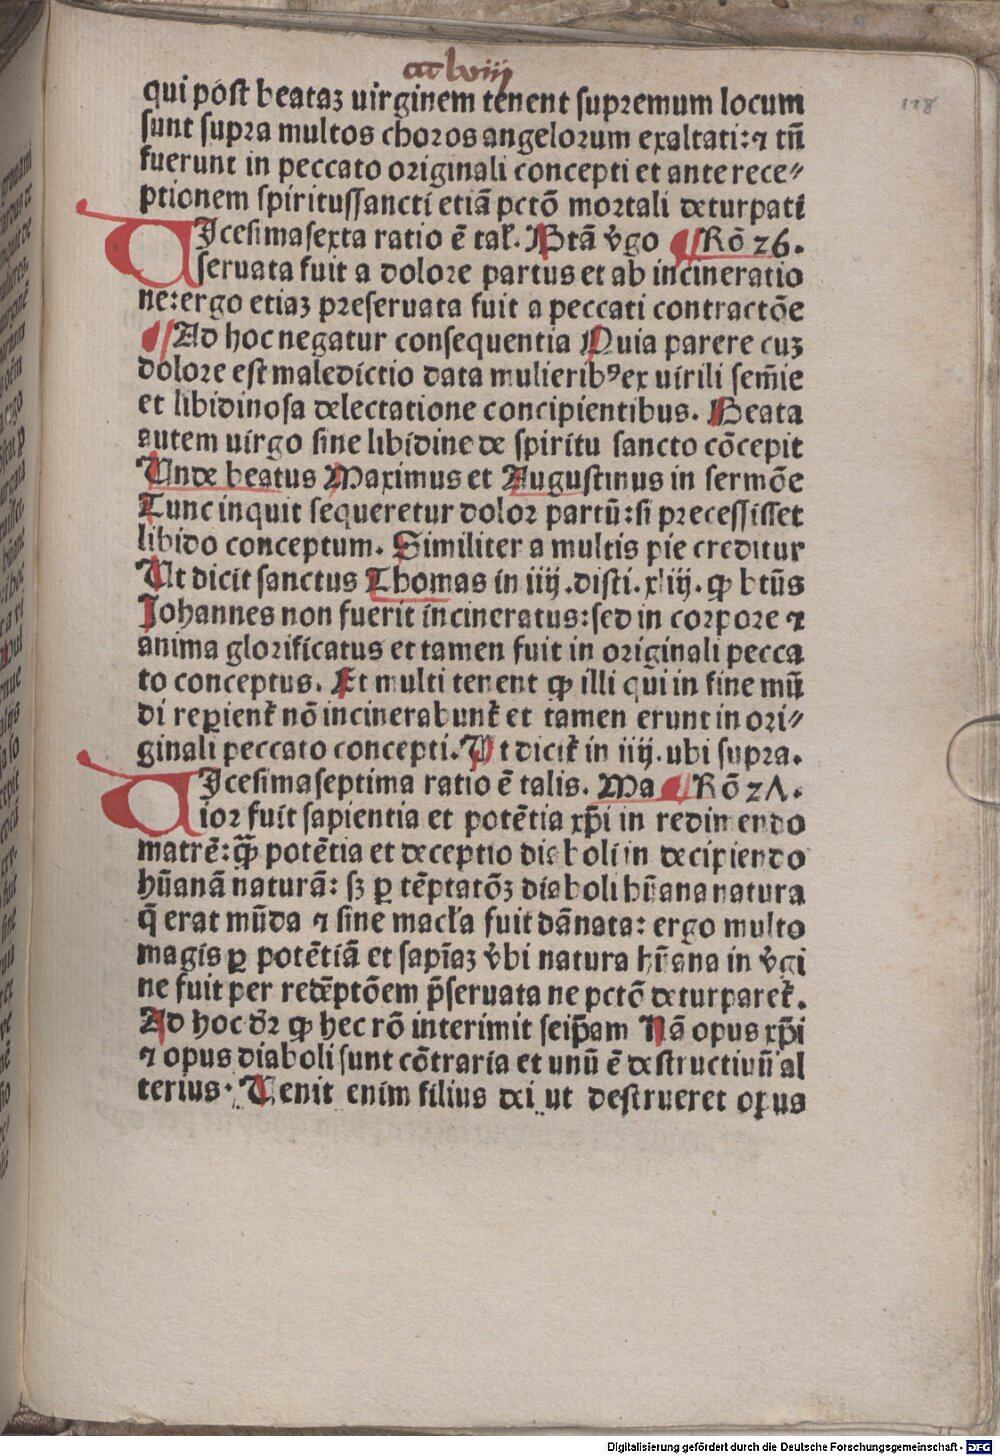 cclviij
128
qui post beataʒ uirginem tenent supremum locum
sunt supra multos choros angelorum exaltati: ⁊ tñ
fuerunt in peccato originali concepti et ante rece⸗
ptionem spiritussancti etiā pctō mortali deturpati
UIcesimasexta ratio ē tal'. Btā v̓go ¶ Rō 26.
seruata fuit a dolore partus et ab incineratio
ne: ergo etiaʒ preseruata fuit a peccati contractōe
¶ Ad hoc negatur consequentia Quia parere cuʒ
dolore est maledictio data mulieribꝰ ex uirili sem̄ie
et libidinosa delectatione concipientibus. Beata
autem uirgo sine libidine de spiritu sancto cōcepit
Unde beatus Maximus et Augustinus in sermōe
Tunc inquit sequeretur dolor partū: si precessisset
libido conceptum. Similiter a multis pie creditur
Ut dicit sanctus Thomas in iiij. disti. xliij. ꝙ btūs
Johannes non fuerit incineratus: sed in corpore ⁊
anima glorificatus et tamen fuit in originali pecca
to conceptus. Et multi tenent ꝙ illi qui in fine mū
di repient̓ nō incinerabunt̓ et tamen erunt in ori⸗
ginali peccato concepti. Ut dicit̓ in iiij. ubi supra.
UIcesimaseptima ratio ē talis. Ma ¶ Rō 27.
ior fuit sapientia et potētia xp̄i in redimendo
matrē: q̄ꝫ potētia et deceptio diaboli in decipiendo
hūanā naturā: sʒ ꝑ tēptatōʒ diaboli hūana natura
q̄ erat mūda ⁊ sine macl'a fuit dānata: ergo multo
magis ꝑ potētiā et sapīaʒ v̓bi natura hūana in v̓gi
ne fuit per redēptōem p̄seruata ne pctō deturparet̓.
Ad hoc dr̄ ꝙ hec rō interimit seip̄am Nā opus xp̄i
⁊ opus diaboli sunt cōtraria et unū ē destructiuū al
terius. Uenit enim filius dei ut destrueret opus
Digitalisierung gefördert durch die Deutsche Forschungsgemeinschaft - DFG